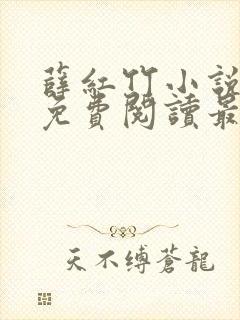 薛紅竹小說
免費閱讀最
天不缚蒼龍